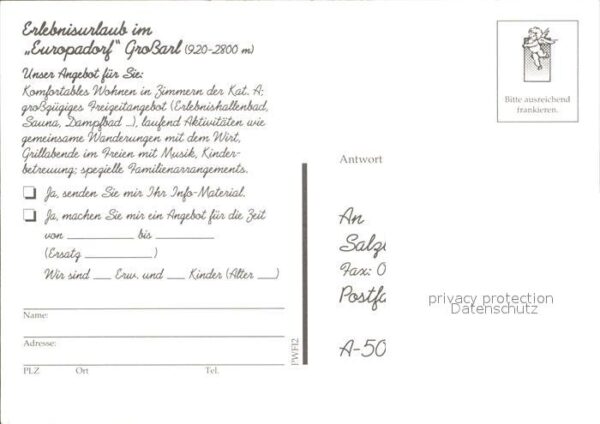 Erlebnisurlaub im
„Europadorf" Großarl (920-2800 m)
Unser Angebot für Sie:
Komfortables Wohnen in Zimmern der Kat. A;
großzügiges Freizeitangebot (Erlebnishallenbad,
Sauna, Dampfbad ...), laufend Aktivitäten wie
gemeinsame Wanderungen mit dem Wirt,
Grillabende im Freien mit Musik, Kinder-
betreuung; spezielle Familienarrangements.
Ja, senden Sie mir Ihr Info-Material.
Ja, machen Sie mir ein Angebot für die Zeit
von ________ bis ________
(Ersatz ________)
Wir sind ___ Erw. und ___ Kinder (Alter ___)
Name:
Adresse:
PLZ Ort Tel.
PWFI2
Bitte ausreichend
frankieren.
Antwort
An
Salz
Fax: 0
Postfa
A-50
privacy protection
Datenschutz